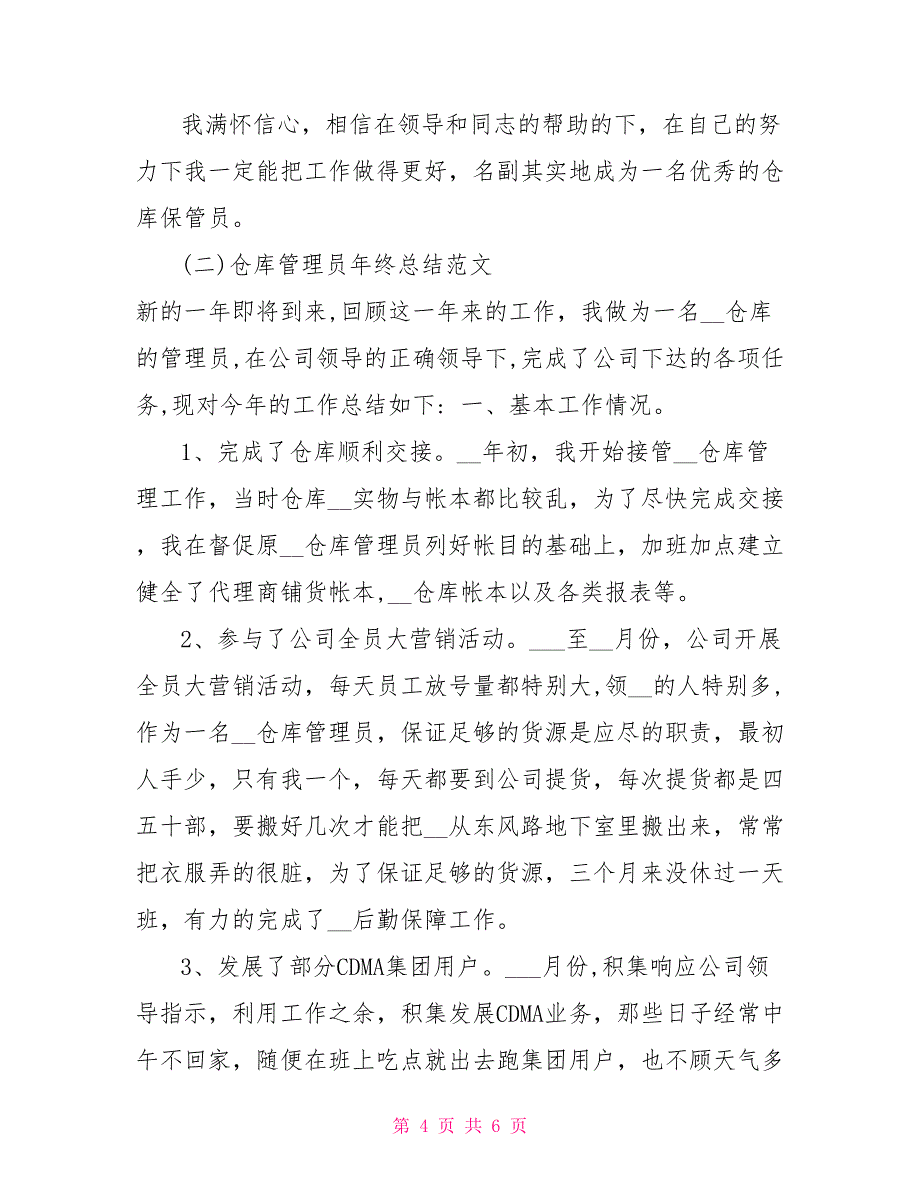 我满怀信心，相信在领导和同志的帮助的下，在自己的努
力下我一定能把工作做得更好，名副其实地成为一名优秀的仓
库保管员。
(二)仓库管理员年终总结范文
新的一年即将到来,回顾这一年来的工作，我做为一名__仓库
的管理员,在公司领导的正确领导下,完成了公司下达的各项任
务,现对今年的工作总结如下: 一、基本工作情况。
1、完成了仓库顺利交接。__年初，我开始接管__仓库管
理工作，当时仓库__实物与帐本都比较乱，为了尽快完成交接
，我在督促原__仓库管理员列好帐目的基础上，加班加点建立
健全了代理商铺货帐本,__仓库帐本以及各类报表等。
2、参与了公司全员大营销活动。___至__月份，公司开展
全员大营销活动，每天员工放号量都特别大,领__的人特别多,
作为一名__仓库管理员，保证足够的货源是应尽的职责，最初
人手少，只有我一个，每天都要到公司提货，每次提货都是四
五十部，要搬好几次才能把__从东风路地下室里搬出来，常常
把衣服弄的很脏，为了保证足够的货源，三个月来没休过一天
班，有力的完成了__后勤保障工作。
3、发展了部分CDMA集团用户。___月份,积集响应公司领
导指示，利用工作之余，积集发展CDMA业务，那些日子经常中
午不回家，随便在班上吃点就出去跑集团用户，也不顾天气多
第 4 页 共 6 页